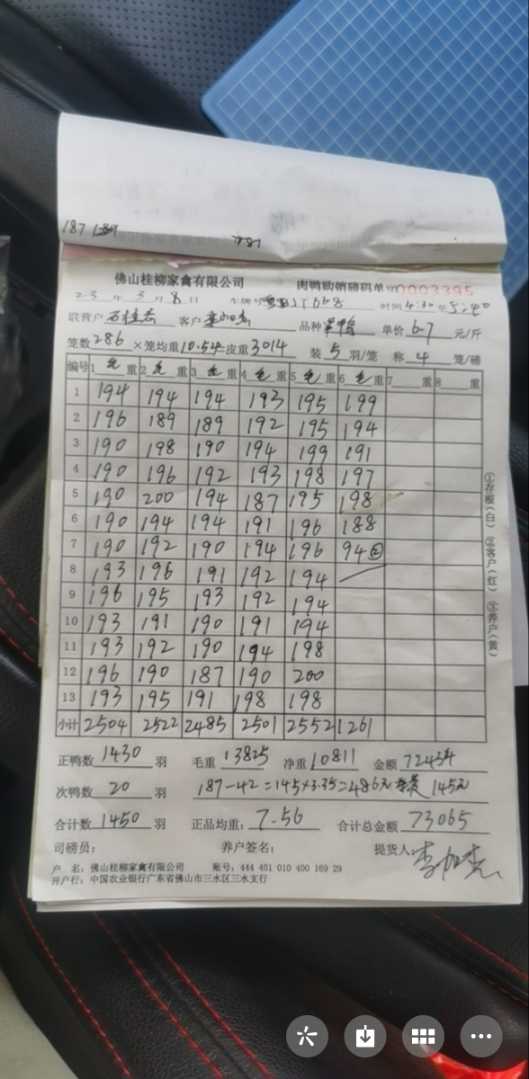 187
佛山桂柳家禽有限公司 肉鸭购销磅码单 0003395
23 年 3 月 8 日 时间 4:30 至 5:40
联营户 客户 品种 单价 6.7 元/斤
笼数 286 ×笼均重 10.54 =皮重 3014 装 5 羽/笼 称 4 笼/磅
编号 1 毛 重 2 毛 重 3 毛 重 4 毛 重 5 毛 重 6 毛 重 7 重 8 重
1 194 194 194 193 195 199
2 196 189 189 192 195 194
3 190 198 190 194 199 191
4 190 196 192 193 198 197
5 190 200 194 187 195 198
6 190 194 194 191 196 188
7 190 192 190 194 196 94②
8 193 196 191 192 194
9 196 195 193 192 194
10 193 191 190 191 194
11 193 192 190 194 198
12 196 190 187 190 200
13 193 195 191 198 198
小计 2504 2522 2485 2501 2552 1261
正鸭数 1430 羽 毛重 13825 净重 10811 金额 72434
次鸭数 20 羽 187-42=145×3.35=486元 145元
合计数 1450 羽 正品均重: 7.56 合计总金额 73065
司磅员: 养户签名: 提货人:
户 名: 佛山桂柳家禽有限公司 账号: 444 401 010 400 169 29
开户行: 中国农业银行广东省佛山市三水区三水支行
①存根(白) ②客户(红) ③养户(黄)